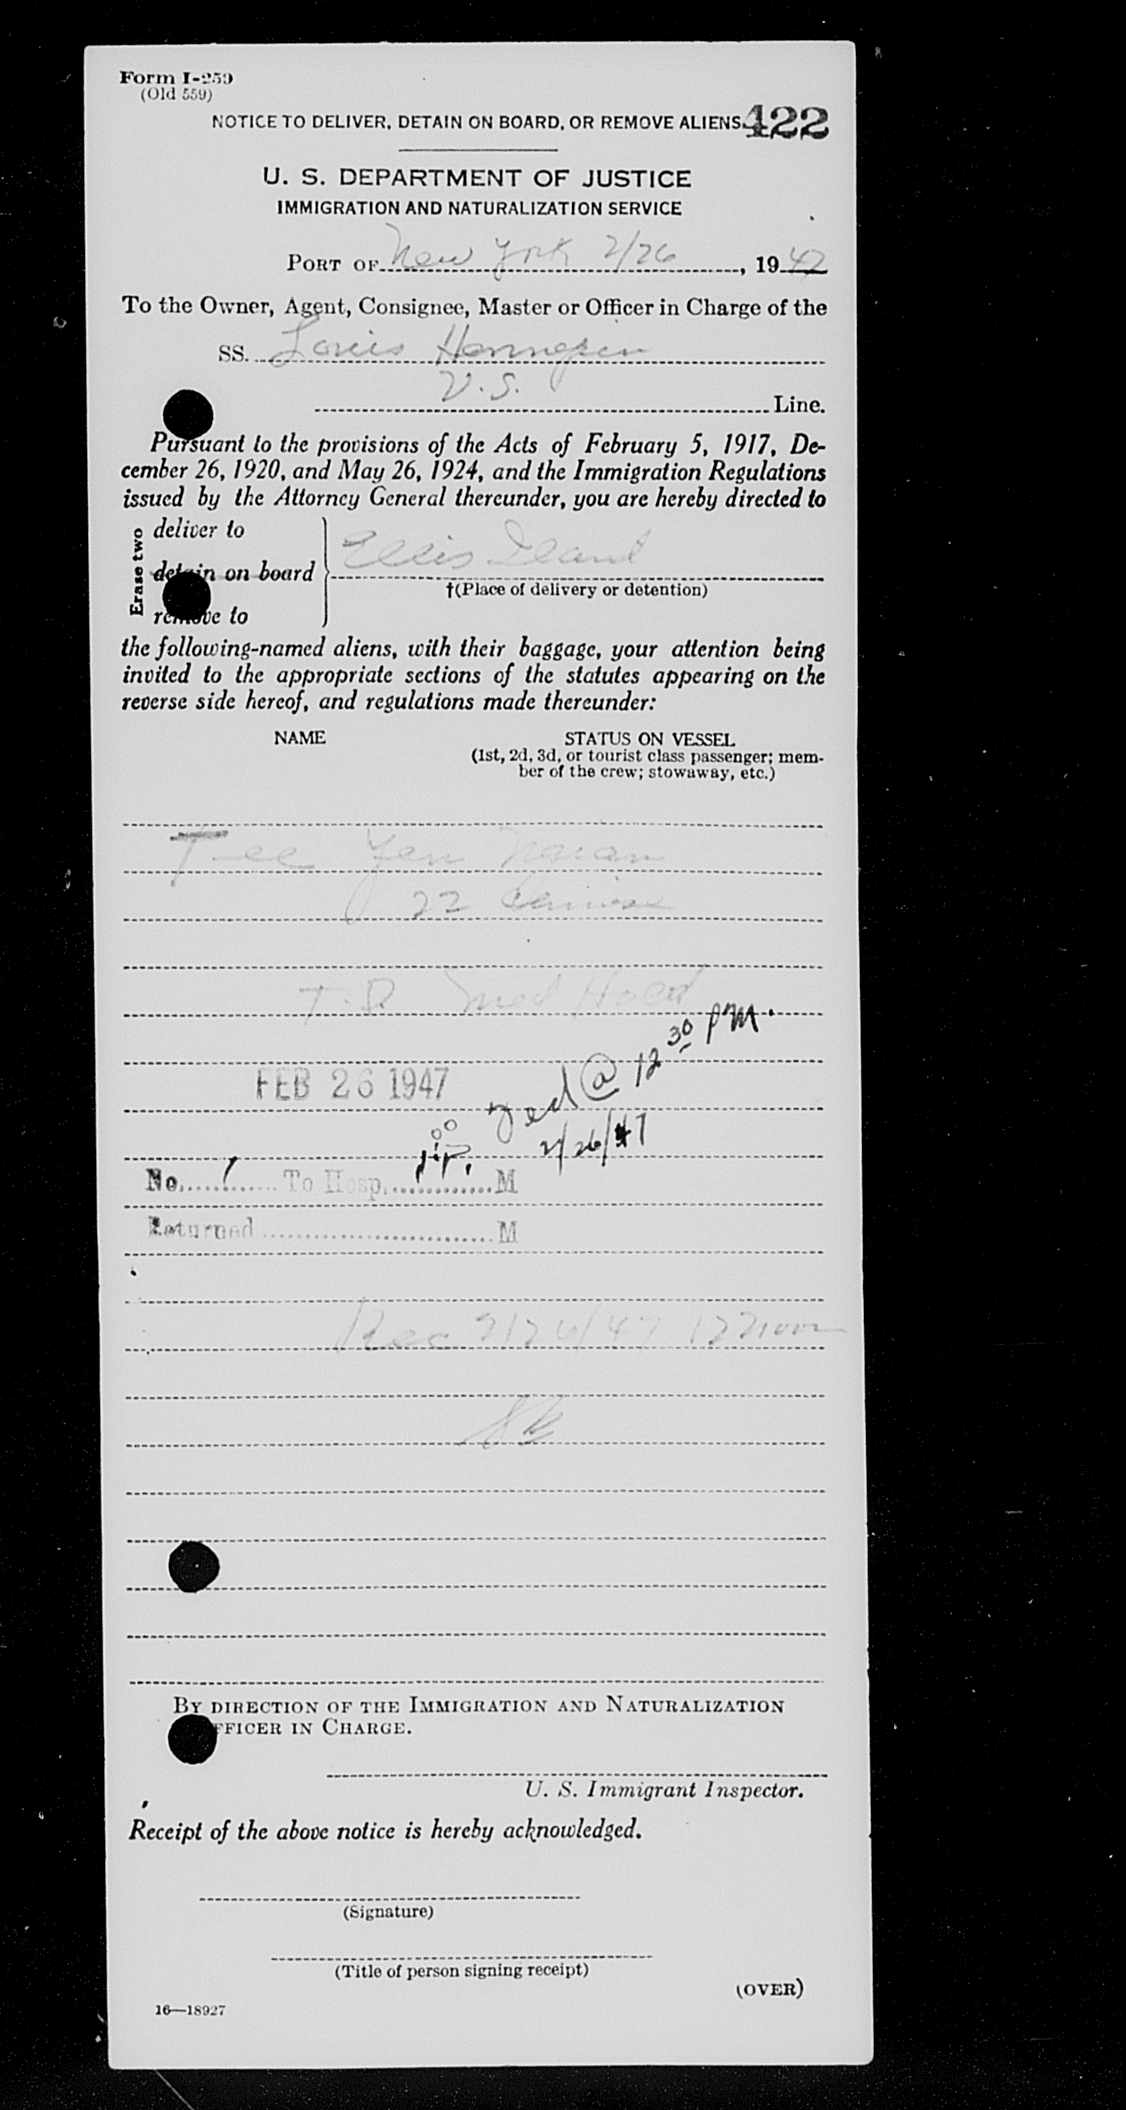 Form I-259
(Old 559)
NOTICE TO DELIVER, DETAIN ON BOARD, OR REMOVE ALIENS 422
U. S. DEPARTMENT OF JUSTICE
IMMIGRATION AND NATURALIZATION SERVICE
PORT OF New York 2/26, 1947
To the Owner, Agent, Consignee, Master or Officer in Charge of the
SS. Louis Hennepin
U.S. Line.
Pursuant to the provisions of the Acts of February 5, 1917, De-
cember 26, 1920, and May 26, 1924, and the Immigration Regulations
issued by the Attorney General thereunder, you are hereby directed to
Erase two
deliver to
detain on board Ellis Island
†(Place of delivery or detention)
remove to
the following-named aliens, with their baggage, your attention being
invited to the appropriate sections of the statutes appearing on the
reverse side hereof, and regulations made thereunder:
NAME STATUS ON VESSEL
(1st, 2d, 3d, or tourist class passenger; mem-
ber of the crew; stowaway, etc.)
Tee Yen
22 Chinese
T.D. Med Hold
FEB 26 1947
@ 12 30 PM.
2/26/47
No. 1 To Hosp. M
Returned M
Rec 2/26/47 12 noon
BY DIRECTION OF THE IMMIGRATION AND NATURALIZATION
OFFICER IN CHARGE.
U. S. Immigrant Inspector.
Receipt of the above notice is hereby acknowledged.
(Signature)
(Title of person signing receipt)
(OVER)
16—18927